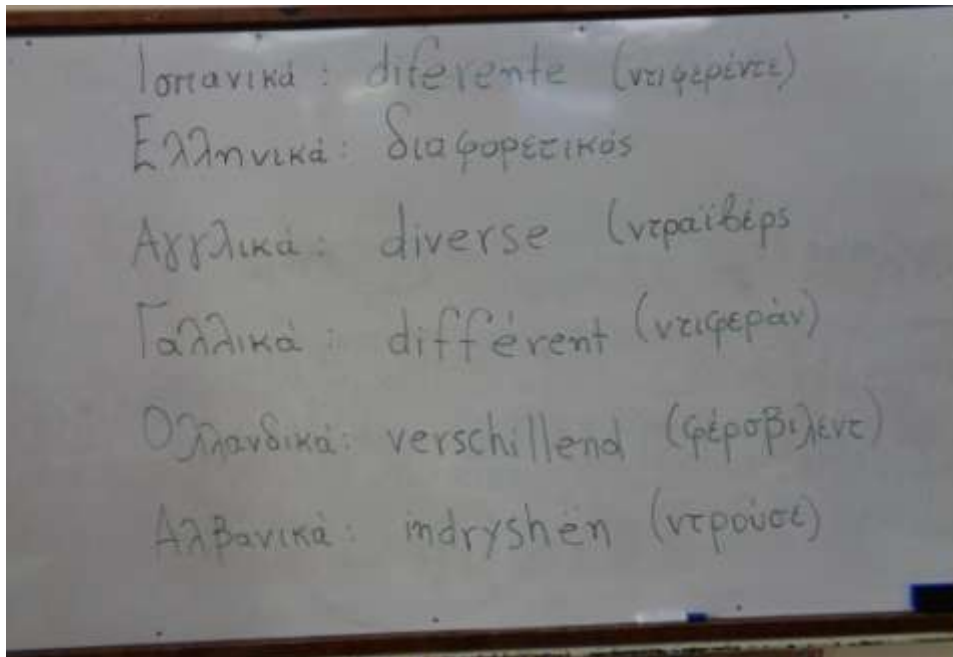 Ισπανικά: diferente (ντιφερέντε)
Ελληνικά: διαφορετικός
Αγγλικά: diverse (ντραϊβέρς
Γαλλικά: différent (ντιφεράν)
Ολλανδικά: verschillend (φέρσβιλεντ)
Αλβανικά: indryshën (ντρούσε)